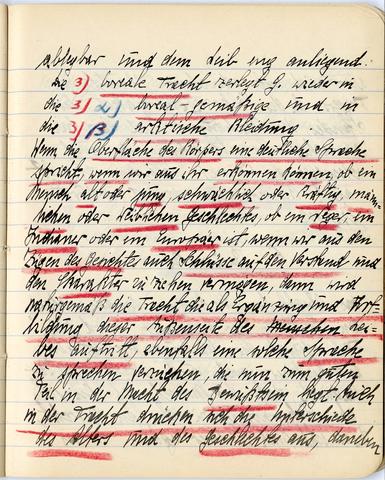 ablegbar und dem Leib eng anliegend.
Die 3) boreale Tracht zerlegt G. wieder in
die 3) α) boreal-gemäßigte und in
die 3) β) arktische Kleidung
Wenn die Oberfläche des Körpers eine deutliche Sprache
spricht, wenn wir aus ihr erkennen können, ob ein
Mensch alt oder jung, schwächlich oder kräftig, männ-
lichen oder weiblichen Geschlechtes, ob ein Neger, ein
Indianer oder ein Europäer ist, wenn wir aus den
Zügen des Gesichtes auch Schlüsse auf den Verstand und
den Charakter zu ziehen vermögen, dann wird
naturgemäß die Tracht die als Ergänzung und Fort-
bildung dieser Außenseite des menschen Lei-
bes auftritt, ebenfalls eine solche Sprache
zu sprechen vermögen, die nun zum guten
Teil in der Macht des Bewußtsein liegt. Auch
in der Tracht drücken sich die Unterschiede
des Alters und des Geschlechtes aus, daneben